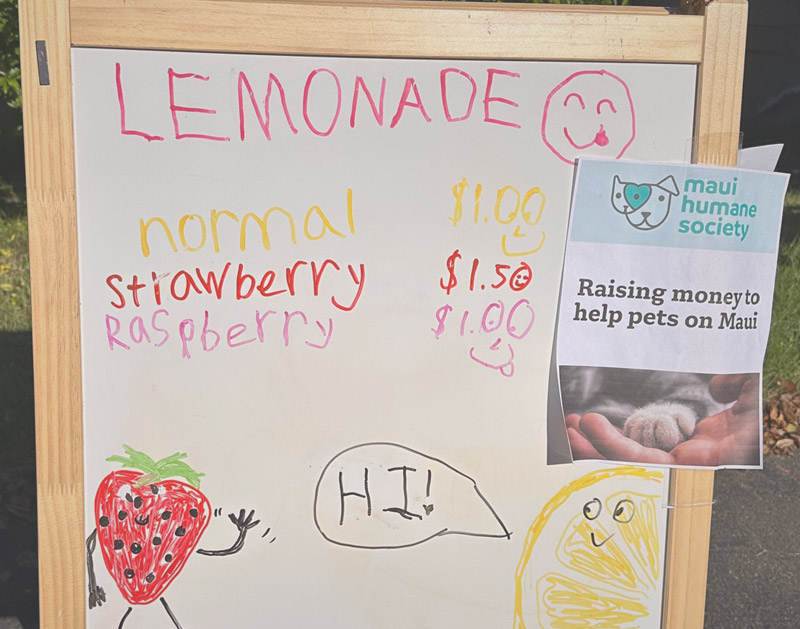 LEMONADE
normal $1.00
strawberry $1.50
Raspberry $1.00
maui
humane
society
Raising money to
help pets on Maui
HI!